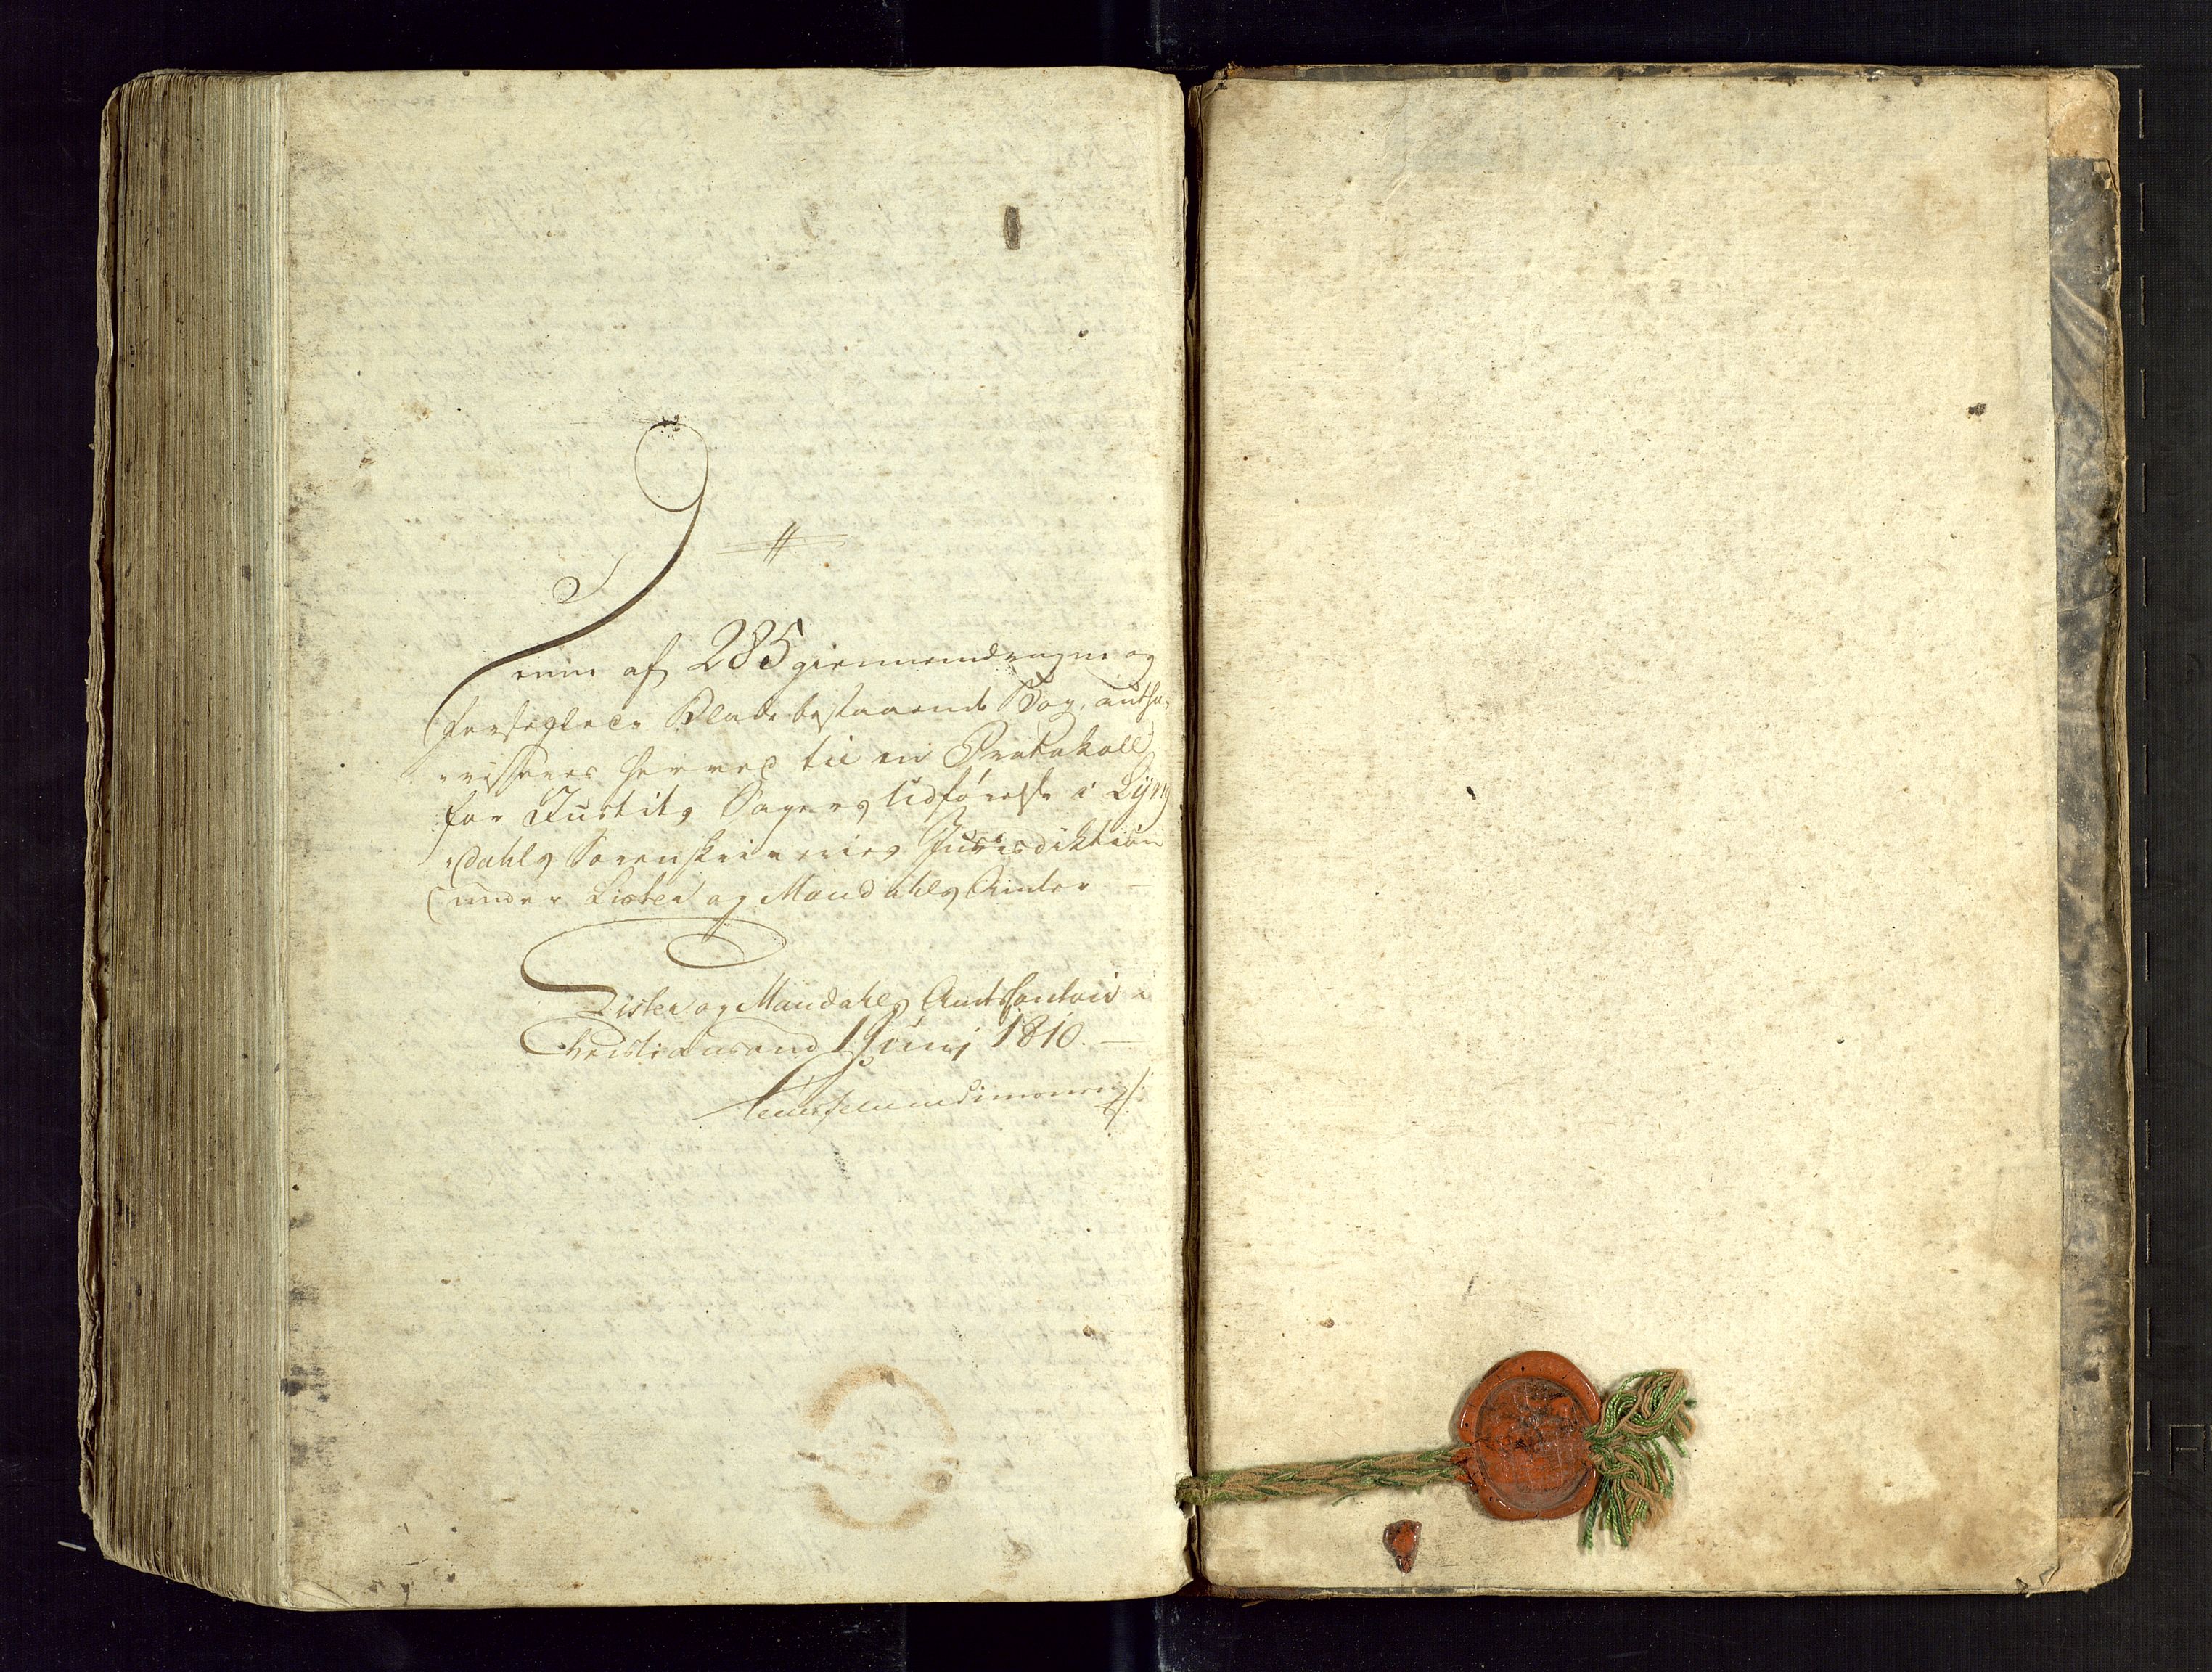 Denne af 285 giennemdragne og
forseglede Blade bestaaende Bog, autho-
-riseres herved til en Protokoll
for Justits Sagers Udførelse i Lyng
-dahls Sorenskriveries Jurisdiktion
under Lister og Mandahls Amter
Lister og Mandahls Amtscontoir
Christiansand 1 Junj 1810.